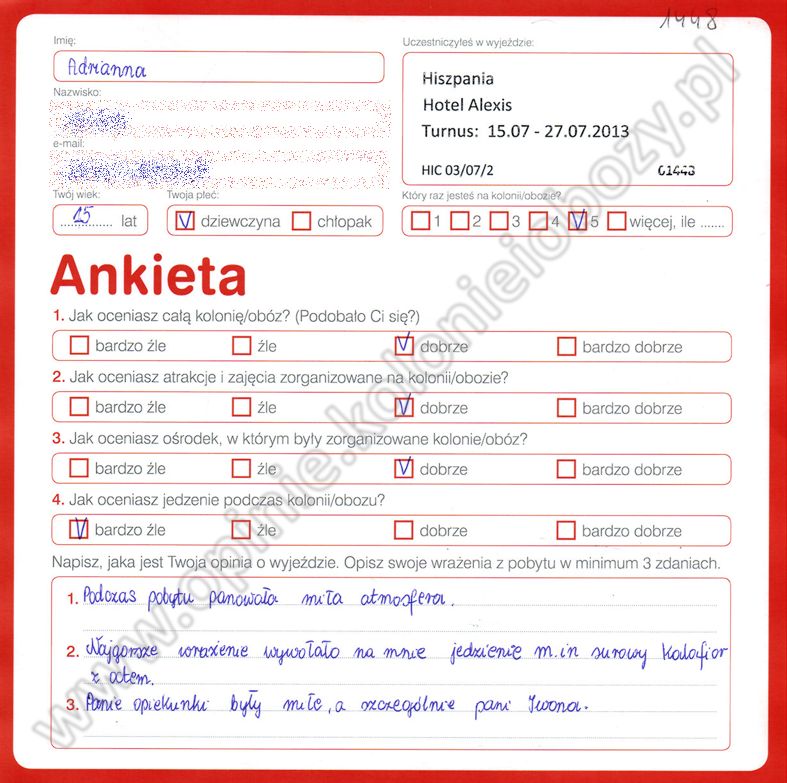 1448
Imię:
Adrianna
Uczestniczyłeś w wyjeździe:
Hiszpania
Hotel Alexis
Turnus: 15.07 - 27.07.2013
HIC 03/07/2 01443
Nazwisko:
e-mail:
Twój wiek:
15 lat
Twoja płeć:
dziewczyna chłopak
Który raz jesteś na kolonii/obozie?
1 2 3 4 5 więcej, ile .......
Ankieta
1. Jak oceniasz całą kolonię/obóz? (Podobało Ci się?)
bardzo źle źle dobrze bardzo dobrze
2. Jak oceniasz atrakcje i zajęcia zorganizowane na kolonii/obozie?
bardzo źle źle dobrze bardzo dobrze
3. Jak oceniasz ośrodek, w którym były zorganizowane kolonie/obóz?
bardzo źle źle dobrze bardzo dobrze
4. Jak oceniasz jedzenie podczas kolonii/obozu?
bardzo źle źle dobrze bardzo dobrze
Napisz, jaka jest Twoja opinia o wyjeździe. Opisz swoje wrażenia z pobytu w minimum 3 zdaniach.
1. Podczas pobytu panowała miła atmosfera.
2. Najgorsze wrażenie wywołało na mnie jedzienie m.in surowy kalafior
z octem.
3. Panie opiekunki były miłe, a szczególnie pani Iwona.
www.opinie.kolonieiobozy.pl